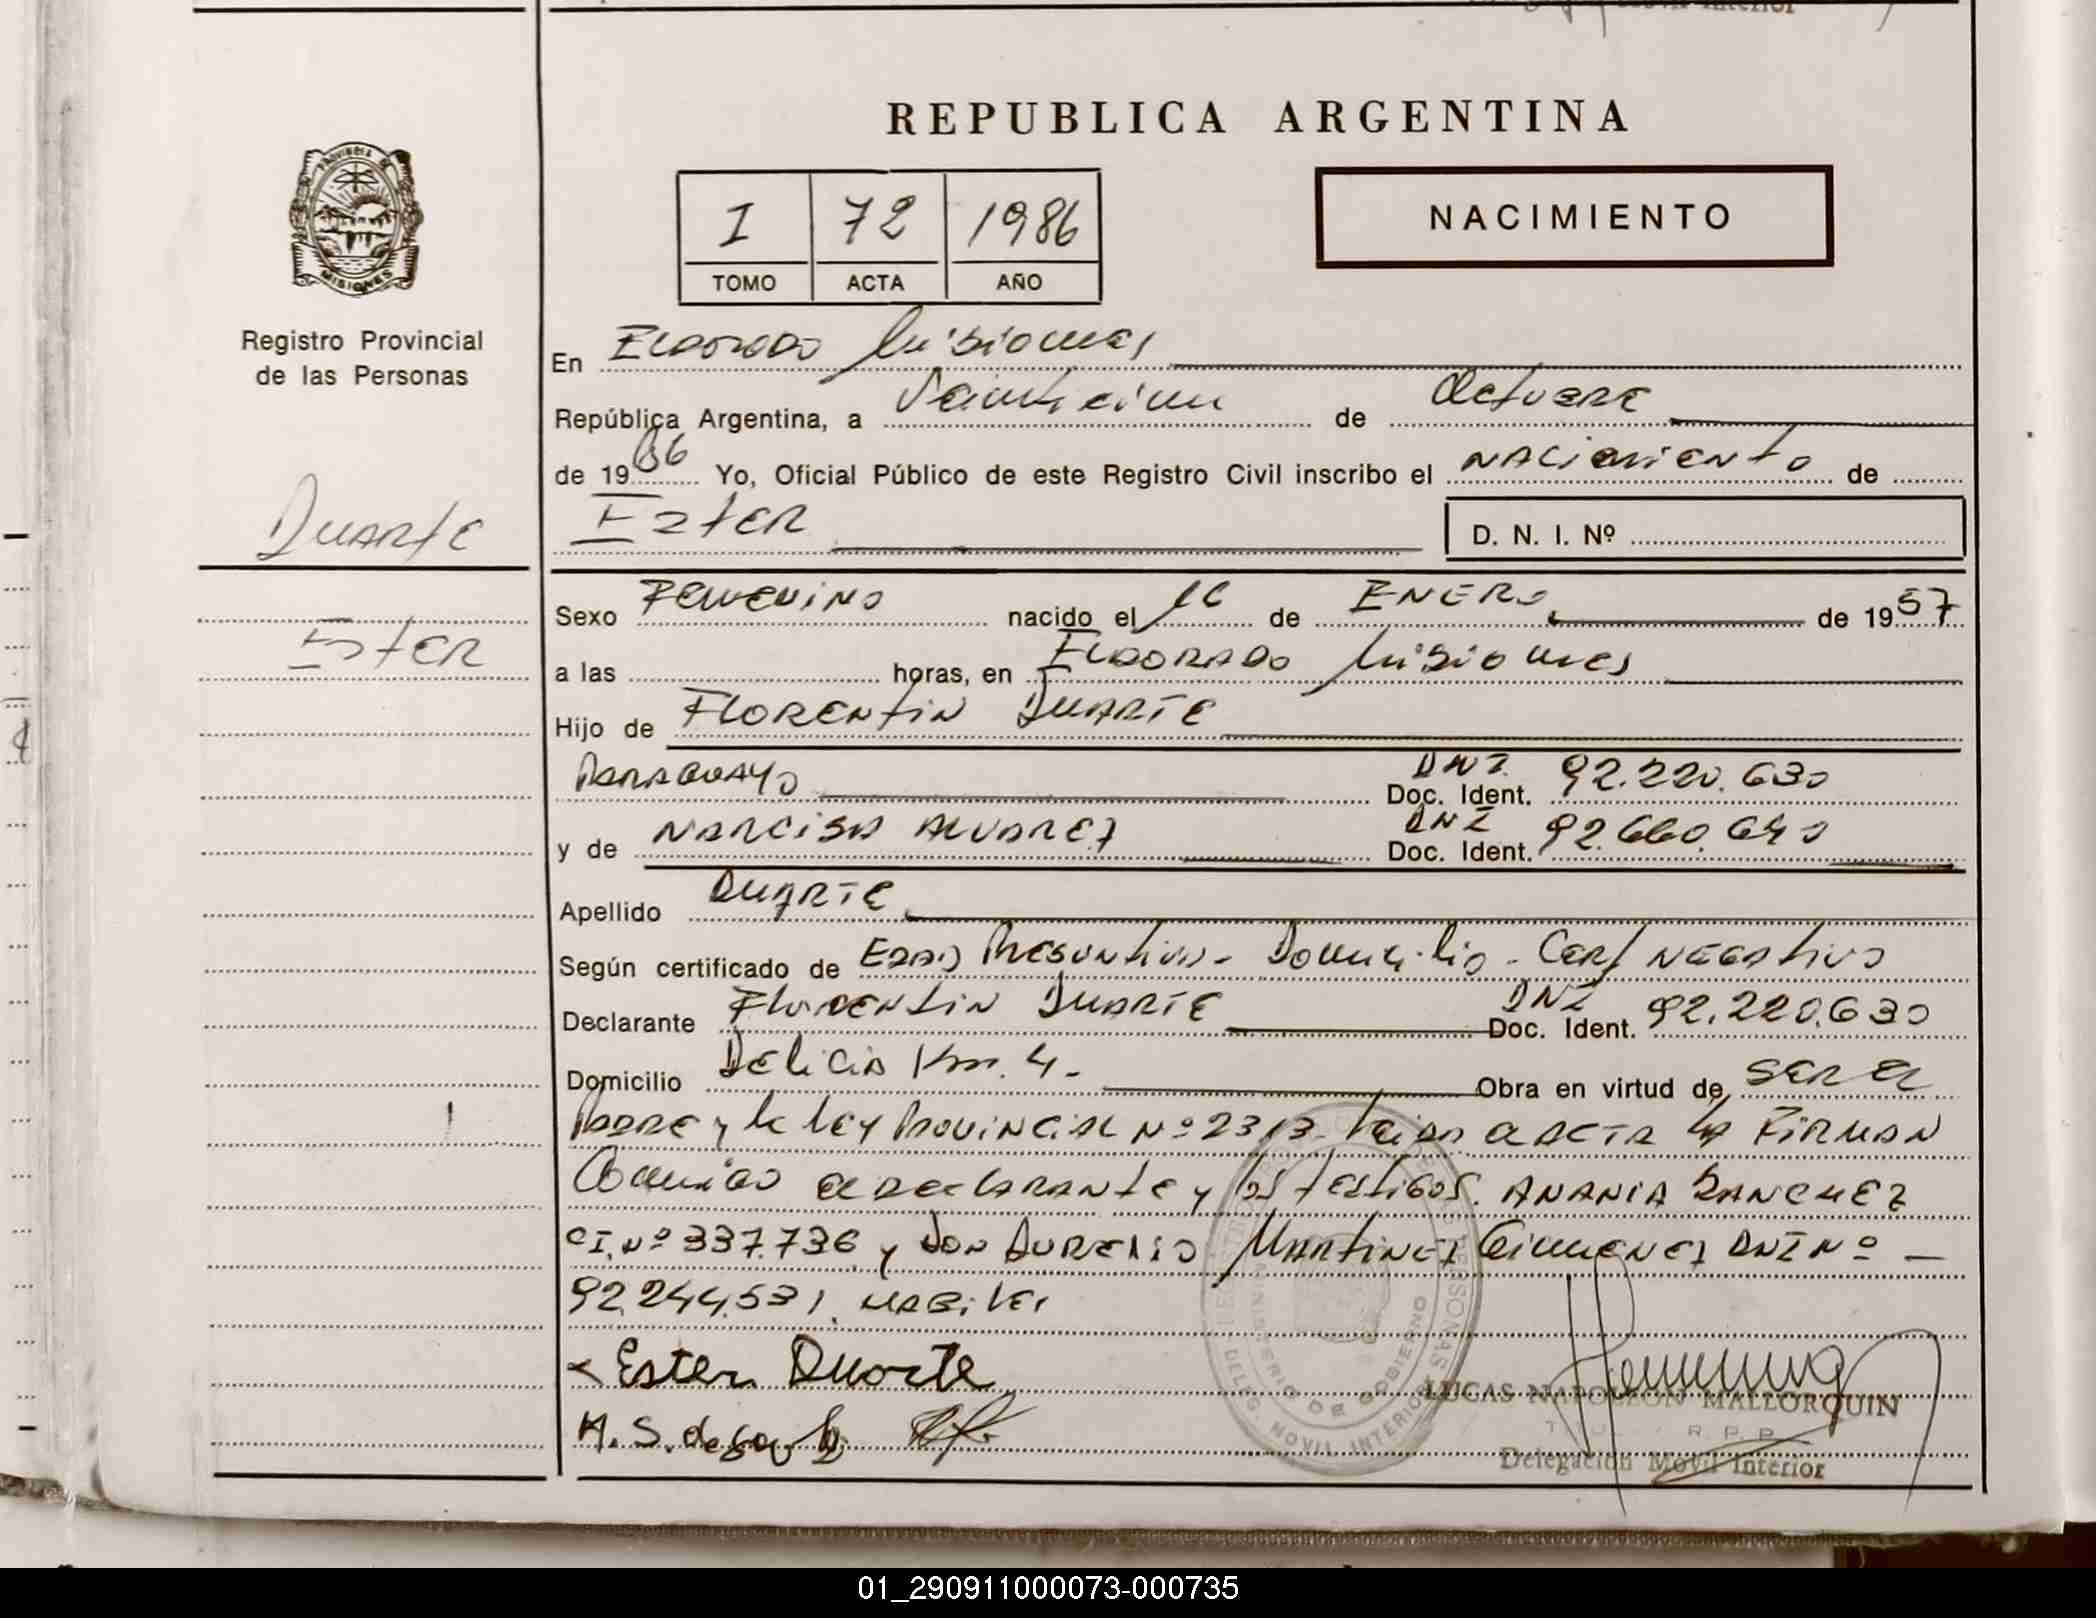 REPUBLICA ARGENTINA
PROVINCIA DE
MISIONES
Registro Provincial
de las Personas
I 72 1986
TOMO ACTA AÑO
NACIMIENTO
En Eldorado Misiones
República Argentina, a Veinticinco de Octubre
de 1986 Yo, Oficial Público de este Registro Civil inscribo el nacimiento de
Duarte
Ester
D. N. I. Nº
Sexo Femenino nacido el 16 de ENERO de 1957
Ester
a las horas, en Eldorado Misiones
Hijo de Florentin Duarte
Paraguayo DNI Doc. Ident. 92.220.630
y de Narcisa Alvarez DNI Doc. Ident. 92.660.640
Apellido Duarte
Según certificado de Edad Presuntiva - Domicilio - Cert Negativo
Declarante Florentin Duarte DNI Doc. Ident. 92.220.630
Domicilio Delicia Km. 4 - Obra en virtud de ser el
Padre y la Ley Provincial Nº 2313. Leida el acta la Firman
Conmigo el declarante y los testigos. Anania Sanchez
CI. Nº 337.736 y Don Aurelio Martinez Gimenez DNI Nº -
92.244.531. Habiles
Ester Duarte
LUCAS NAPOLEON MALLORQUIN
R. P. P.
Delegación Móvil Interior
MINISTERIO DE GOBIERNO
DELEG. MOVIL INTERIOR
01_290911000073-000735